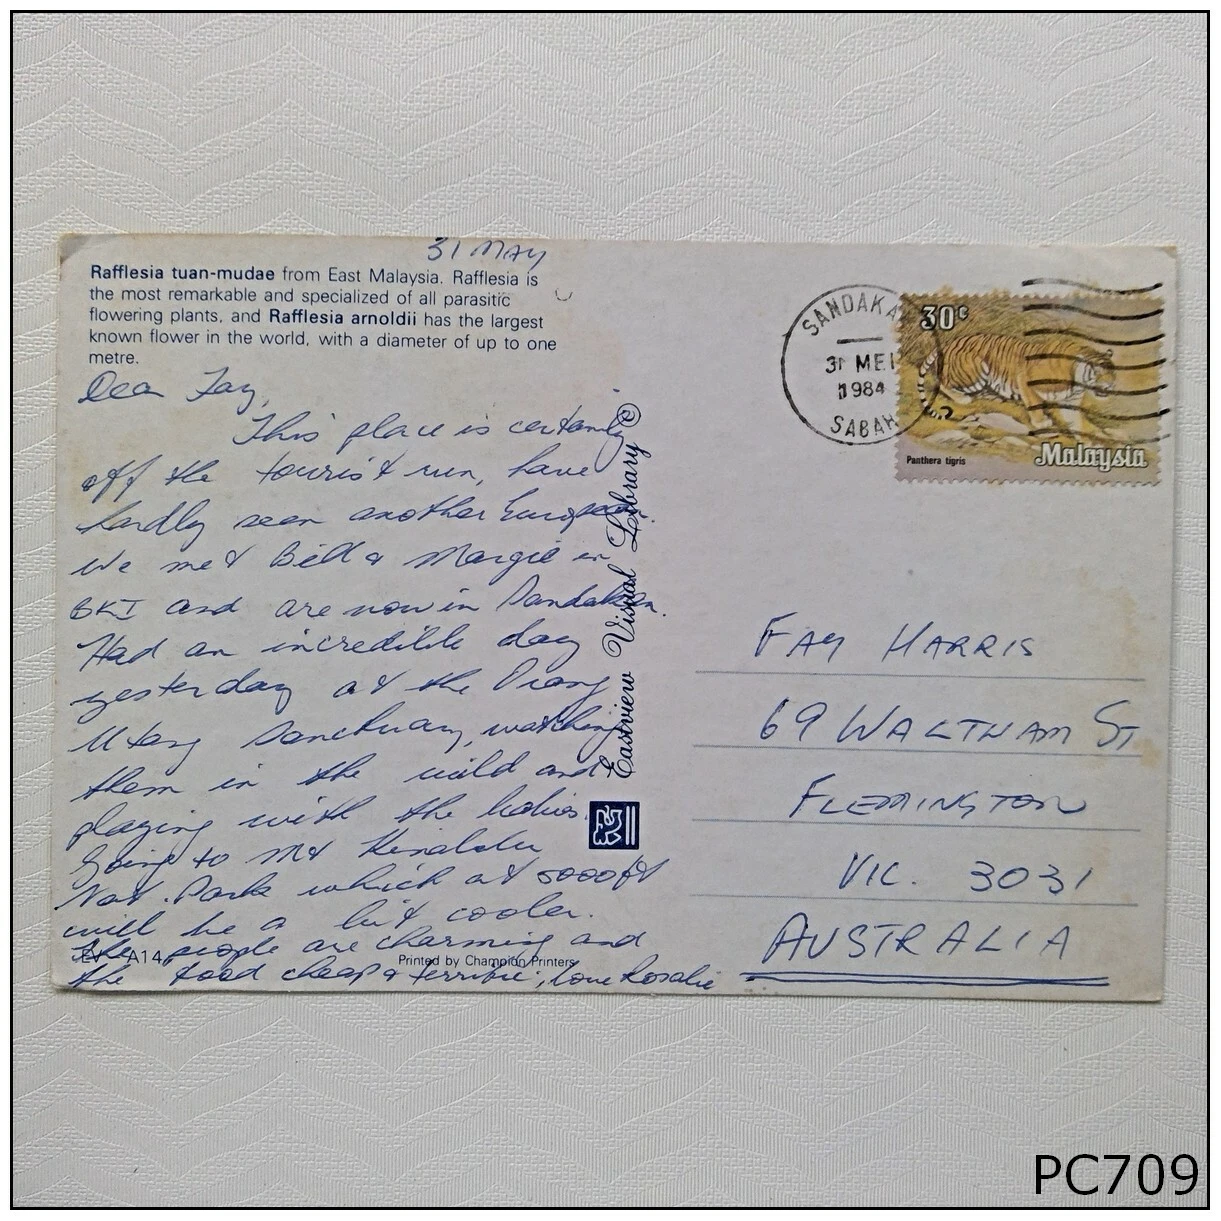 31 MAY
Rafflesia tuan-mudae from East Malaysia. Rafflesia is
the most remarkable and specialized of all parasitic
flowering plants, and Rafflesia arnoldii has the largest
known flower in the world, with a diameter of up to one
metre.
Dear Fay,
This place is certainly
off the tourist run, have
hardly seen another European.
We met Bill & Margie in
BKI and are now in Sandakan.
Had an incredible day
yesterday at the Orang
Utang Sanctuary, watching
them in the wild and
playing with the babies.
Going to Mt Kinabalu
Nat. Park which at 5000ft
will be a bit cooler.
The people are charming and
the food cheap & terrific, love Rosalie
EV A14
Printed by Champion Printers
Eastview Visual Library ©
SANDAKA
31 MEI
1984
SABAH
30c
Panthera tigris
Malaysia
FAY HARRIS
69 WALTHAM ST
FLEMINGTON
VIC. 3031
AUSTRALIA
PC709